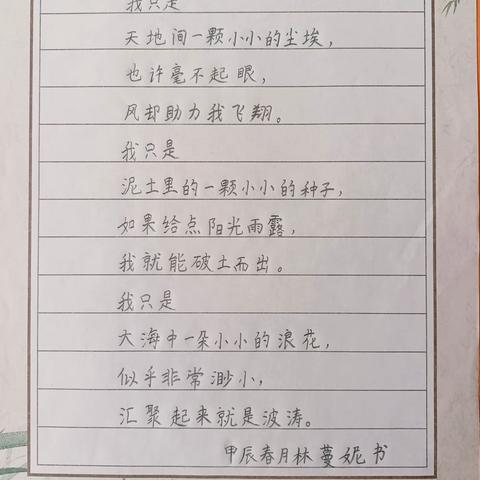 我只是
天地间一颗小小的尘埃，
也许毫不起眼，
风却助力我飞翔。
我只是
泥土里的一颗小小的种子，
如果给点阳光雨露，
我就能破土而出。
我只是
大海中一朵小小的浪花，
似乎非常渺小，
汇聚起来就是波涛。
甲辰春月林蔓妮书